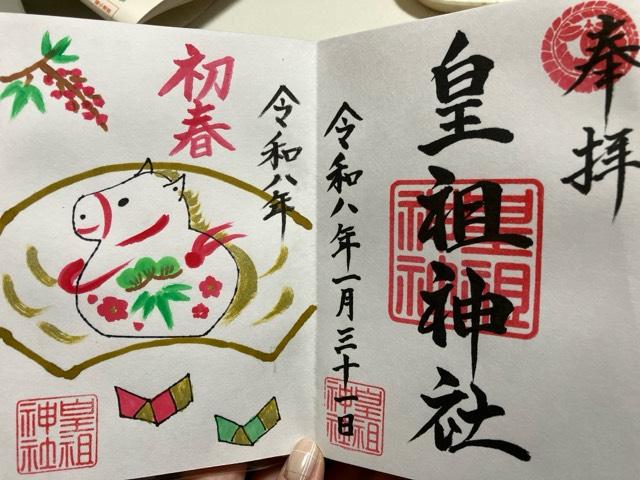 奉拝
皇祖神社
皇祖
神社
令和八年一月三十一日
皇祖
神社
令和八年
初春
皇祖
神社